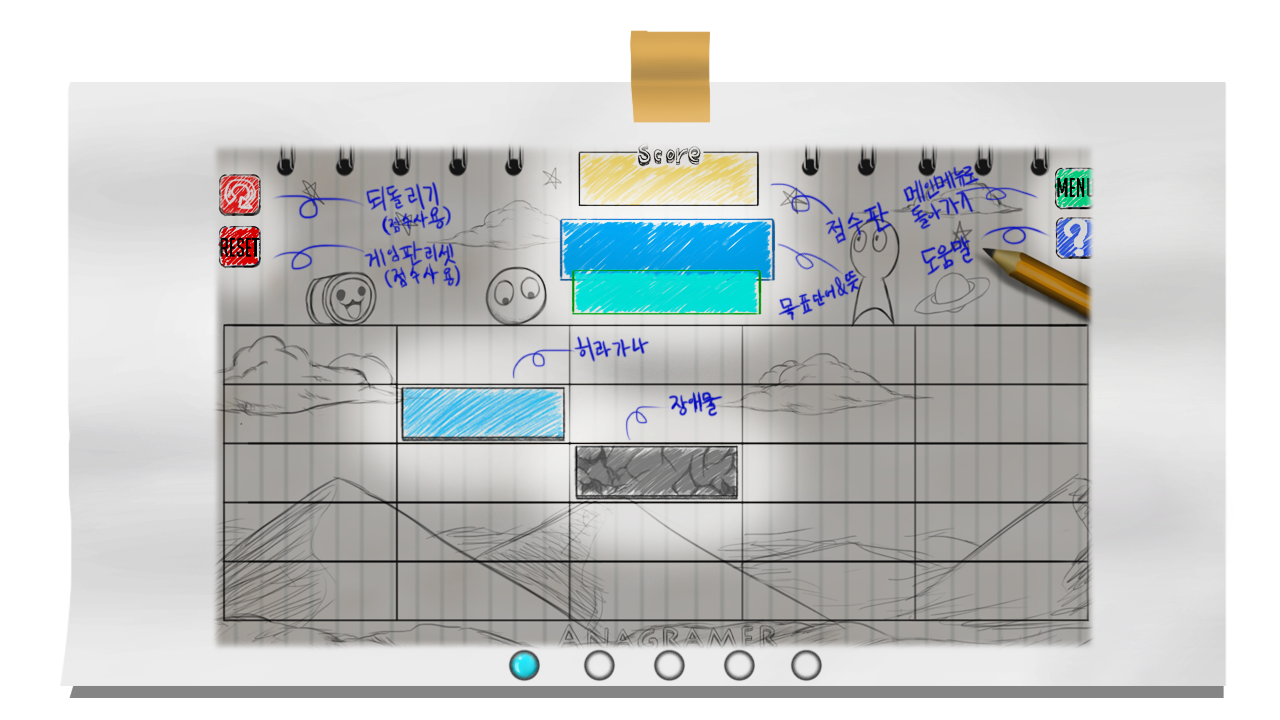 Score
되돌리기
(점수사용)
RESET
게임판리셋
(점수사용)
점수판
메인메뉴로
돌아가기
MENU
도움말
?
목표단어&뜻
히라가나
장애물
ANAGRAMER